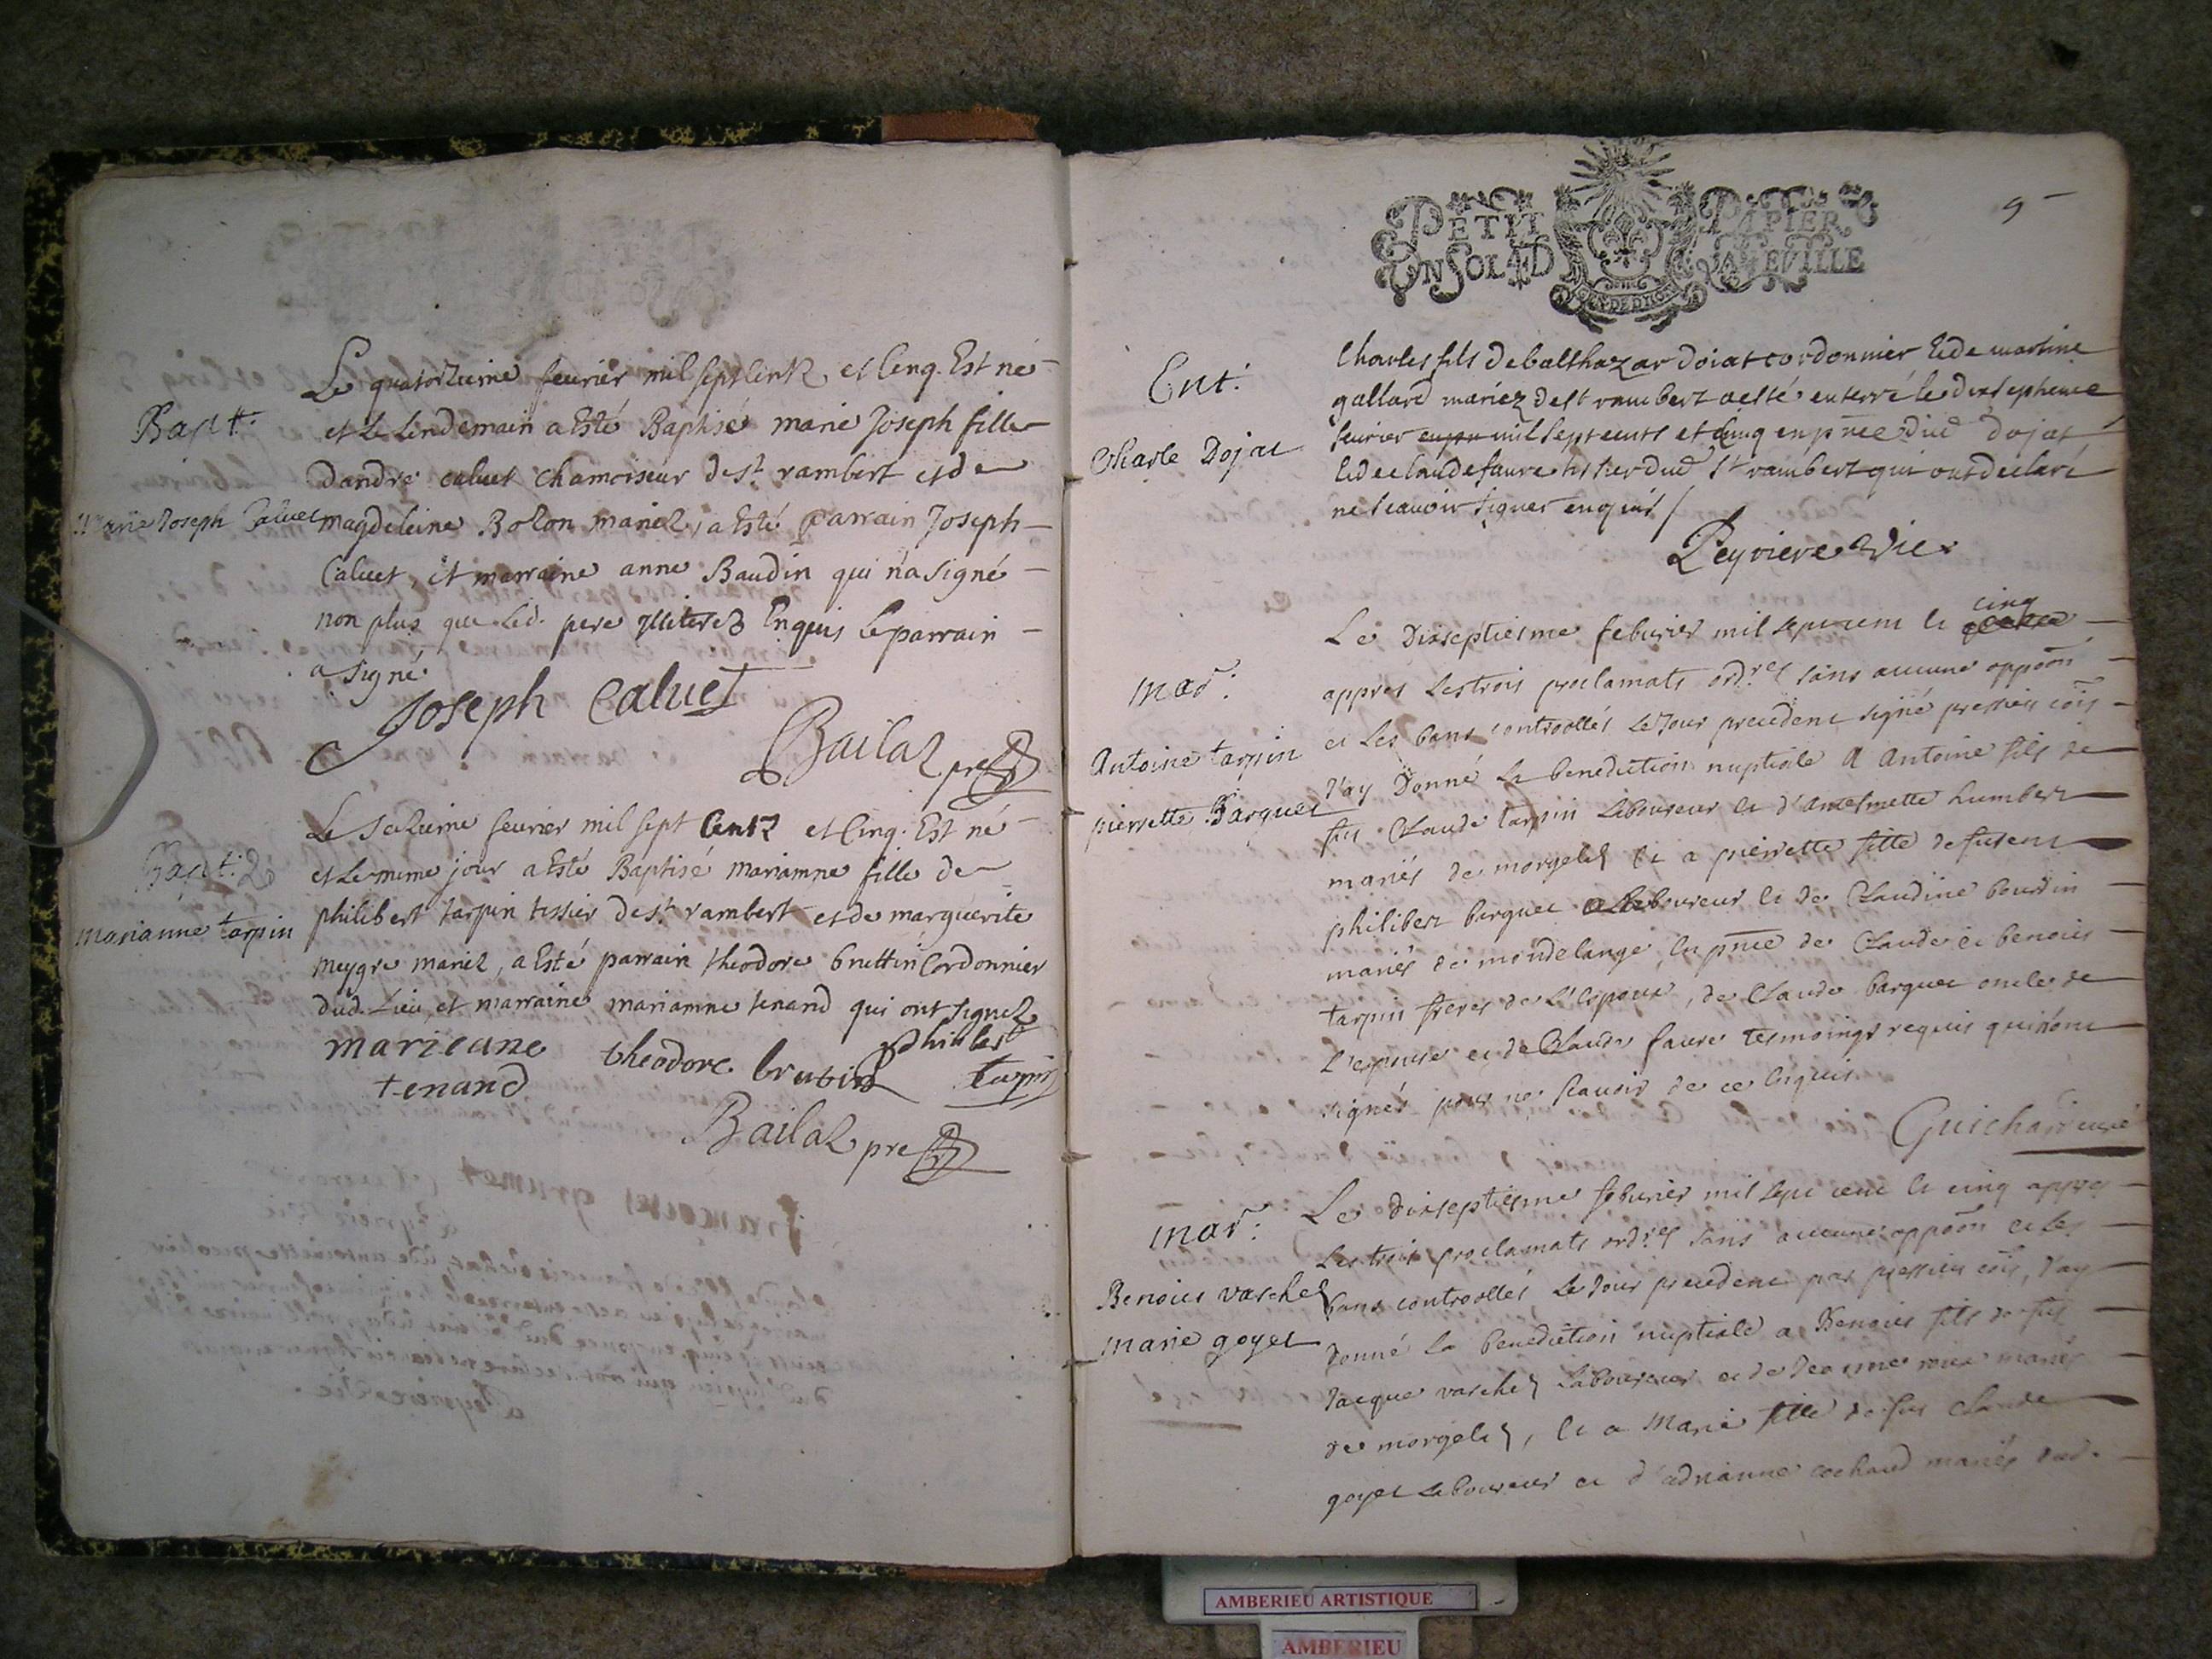 Bapt:
Marie Joseph Caluet
Le quatorzieme feurier mil sept Centz et Cenq. Est né
et Le Lendemain a Esté Baptisé marie Joseph fille
dandré caluet chamoiseur de st rambert et de
magdeleine Bozon mariez, a Esté parrain Joseph
Caluet, et marraine anne Baudin qui n'a signé
non plus que Led. pere illiterez Enquis Le parrain
a signé
Joseph Caluet
Bailaz pre
Bapt: 2
marianne tarpin
Le Seizieme feurier mil sept Centz et Cinq. Est né
et Le meme jour a Esté Baptisé mariamne fille de
philibert tarpin tissier de st rambert et de marguerite
meygre mariez, a Esté parrain theodore bruttin Cordonnier
dud. Lieu, et marraine mariamne tenand qui ont signez
marieane tenand
theodore brutin
philibert tarpin
Bailaz pre
PETIT PAPIER
UN SOL LA FEUILLE
9
Ent:
Charle Dojat
Charles fils de balthazar doiat cordonnier & de martine
gallard mariez de st rambert a esté enterré le dixseptieme
feurier mil sept cents et Cinq en pñce dud dojat
& de claude faure tissier dud st rambert qui ont declaré
ne scauoir signer enquis /
Peyriere Vic
Mar:
Antoine tarpin
pierrette Barquet
Le Dixseptiesme feburier mil sept cent et cinq
appres Les trois proclamats ordres sans aucune oppoõn
et Les bans controollés Le Jour precedent signé pressieu cõis
J'ay Donné La benediction nuptiale A Antoine fils de
fus Claude tarpin Laboureur et d'Antelmette humbert
mariés de morgelet et a pierrette fille de fusent
philibert barquet Laboureur et de Claudine bourdin
mariés de mondelange, en pñce de Claude et benoict
tarpin freres de L'Espoux, de Claude barquet oncle de
L'espouse et de Claude faure tesmoings requis qui n'ont
signés pour ne scauoir de ce Enquis
Guichard curé
Mar:
Benoict varchet
marie goyet
Le dixseptiesme feburier mil sept cent et cinq appres
Les trois proclamats ordres sans aucune oppoõn et Les
bans controollés Le Jour precedent par pressieu cõis, J'ay
donné La benediction nuptiale a Benoict fils de fus
Jacque varchet Laboureur et de Jeanne roux mariés
de morgelet, et a Marie fille de fus Claude
goyet Laboureur et d'adrianne cochaud mariés dud.
AMBERIEU ARTISTIQUE
AMBERIEU